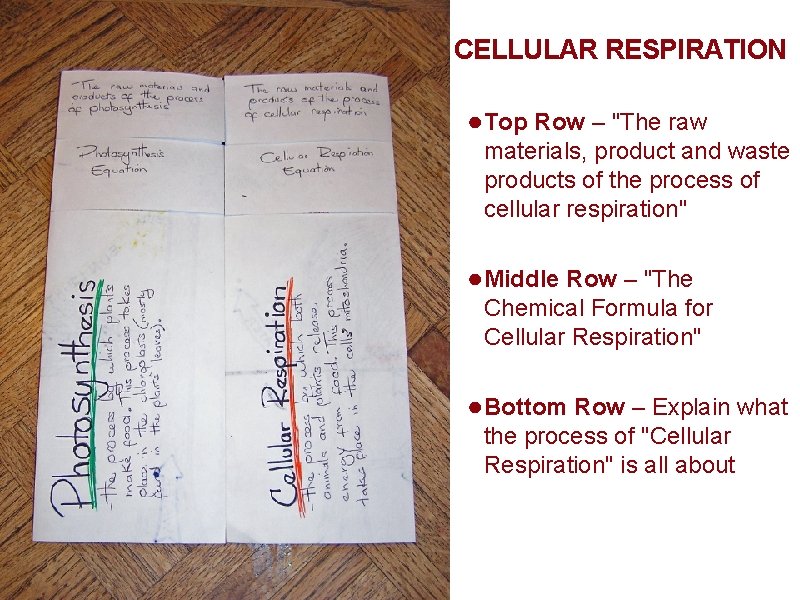 CELLULAR RESPIRATION
●Top Row – "The raw
materials, product and waste
products of the process of
cellular respiration"
●Middle Row – "The
Chemical Formula for
Cellular Respiration"
●Bottom Row – Explain what
the process of "Cellular
Respiration" is all about
-The raw materials and
products of the process
of photosynthesis
The raw materials and
products of the process
of cellular respiration
Photosynthesis
Equation
Cellular Respiration
Equation
Photosynthesis
- the process by which plants
make food. This process takes
place in the chloroplasts (mostly
found in the plants leaves).
Cellular Respiration
- the process by which both
animals and plants release
energy from food. This process
takes place in the cells mitochondria.